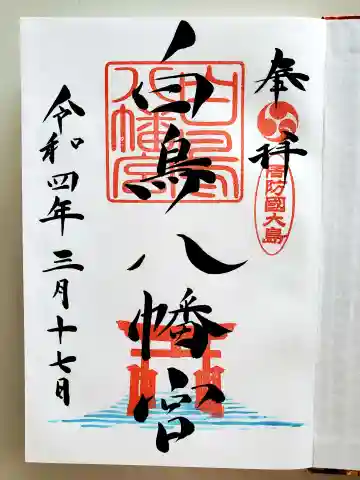 奉拝
周防國大島
白鳥八幡宮
白鳥八幡宮
令和四年三月十七日